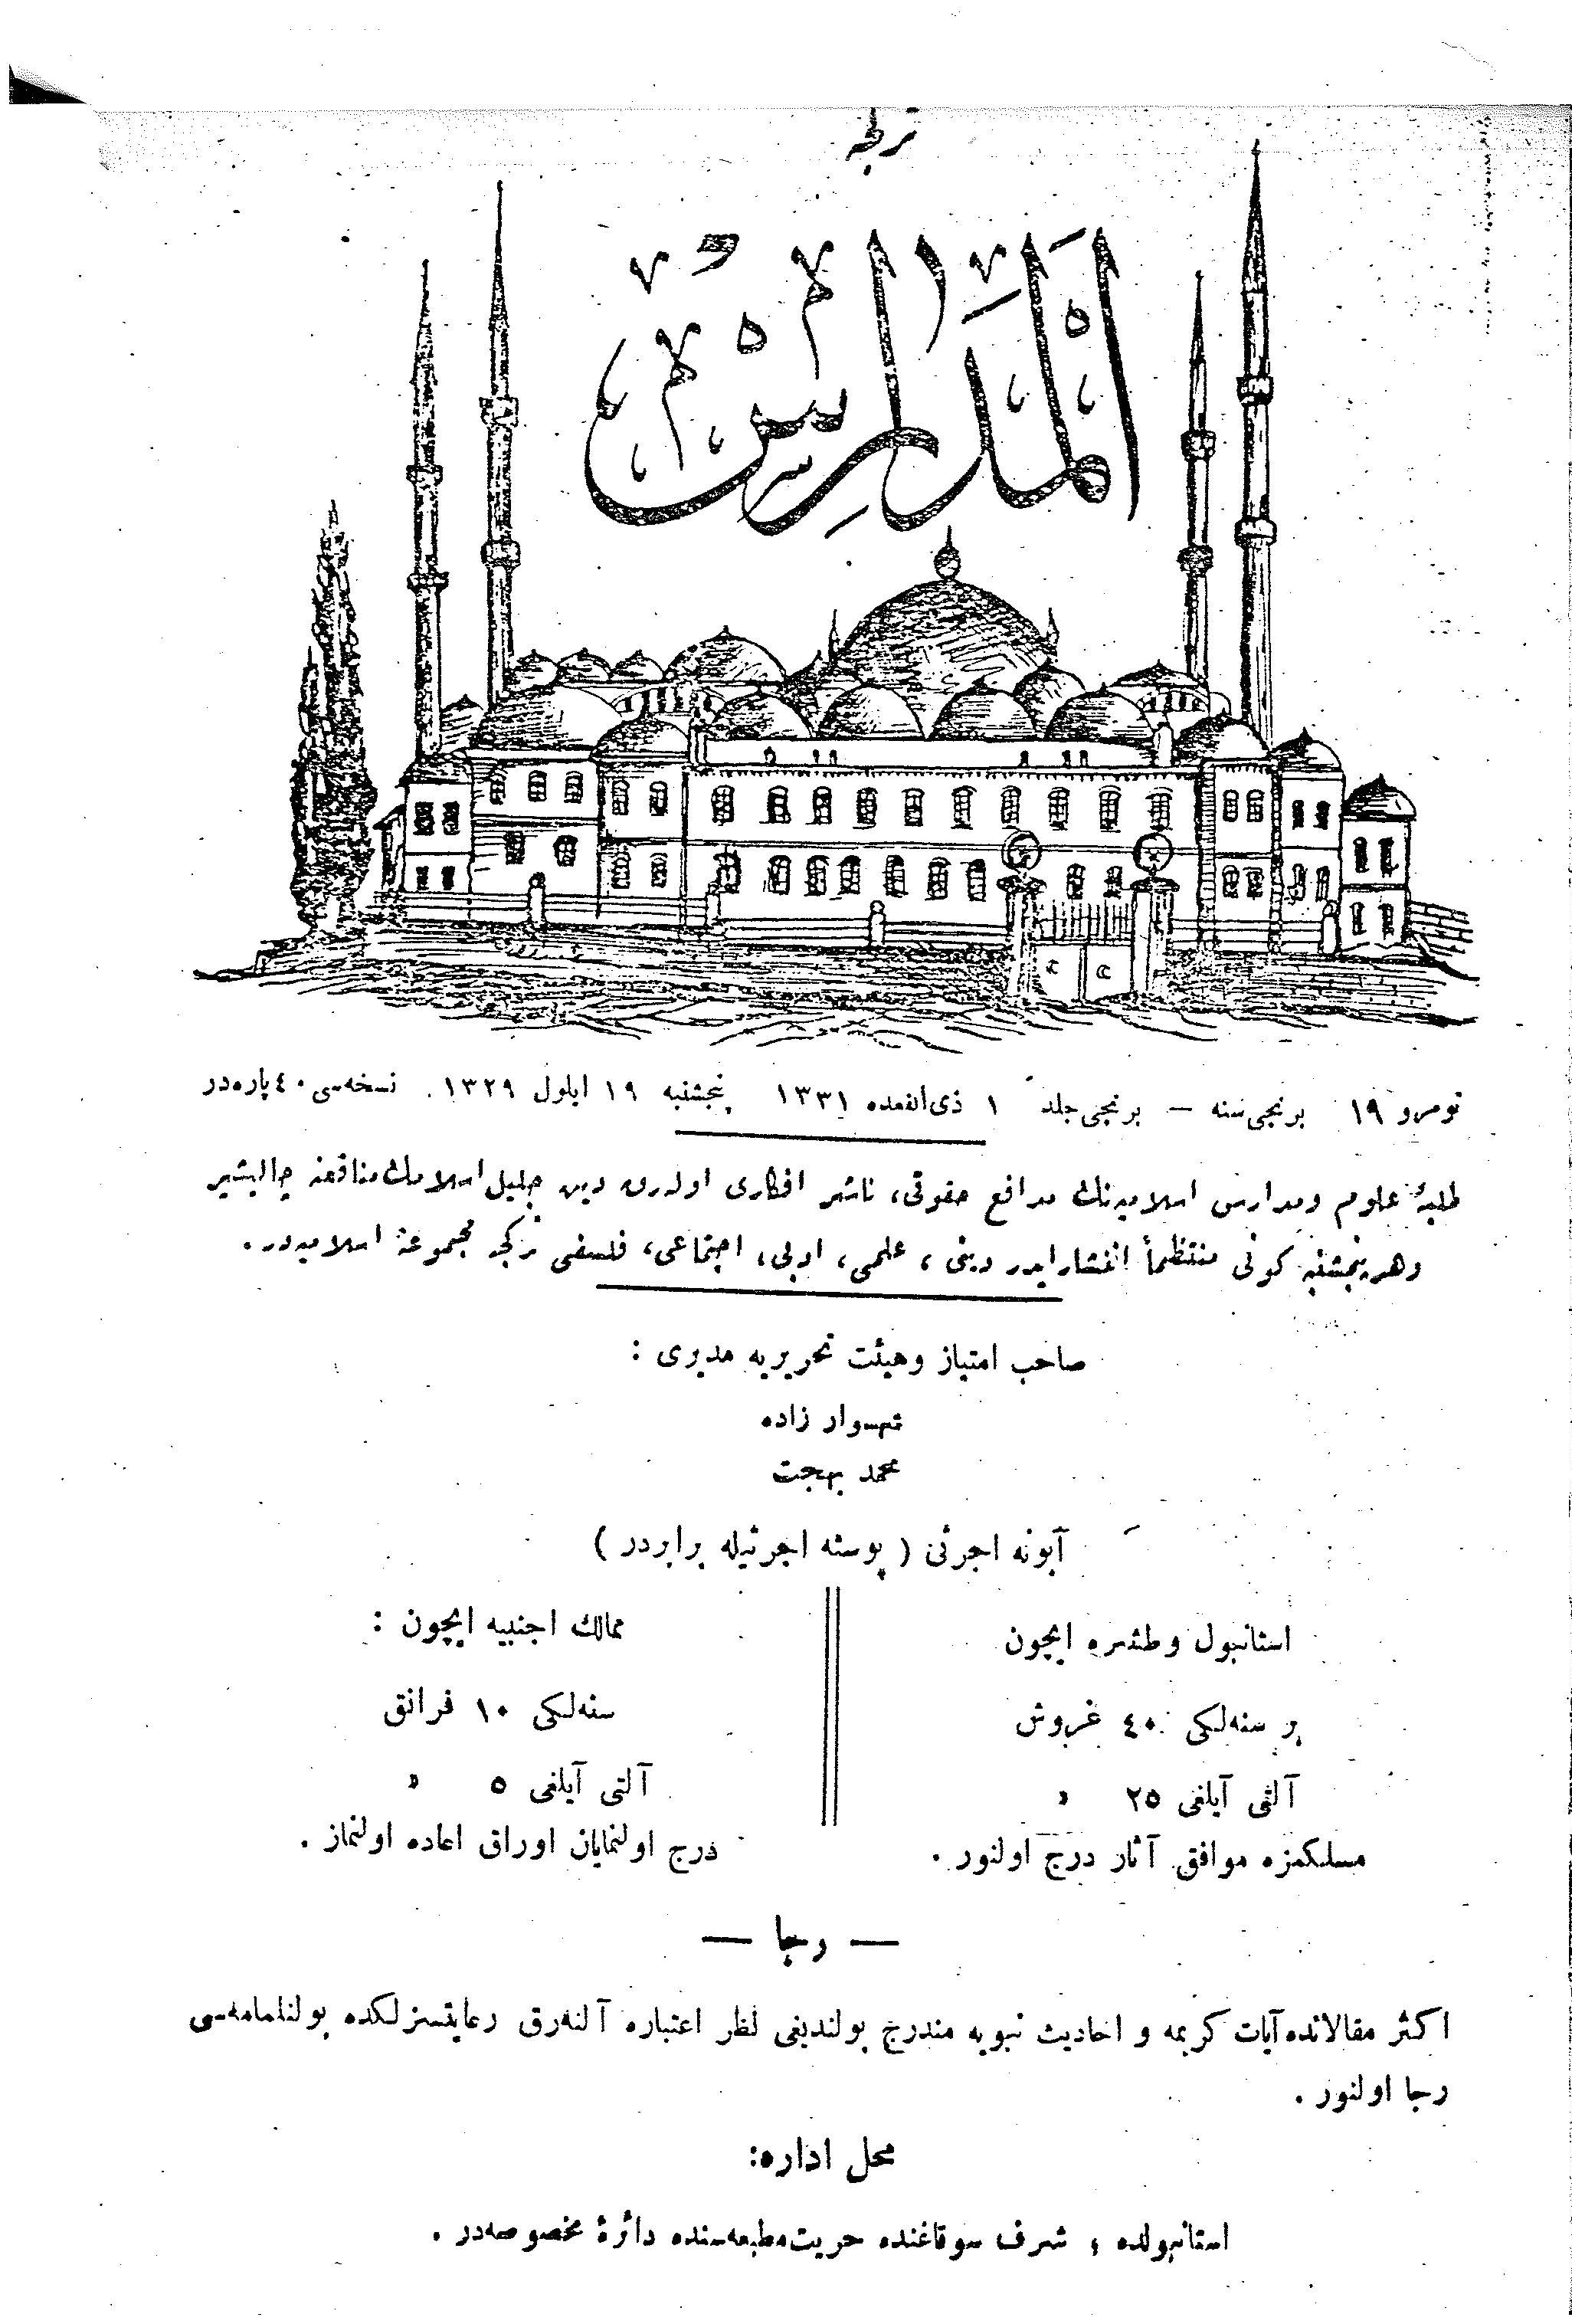 تركجه
المدارس
نومرو ١٩ برنجی سنه — برنجی جلد ١ ذی القعده ١٣٣١ پنجشنبه ١٩ ایلول ١٣٢٩ نسخه‌سی ٤٠ پاره‌در
طلبهٔ علوم ومدارس اسلامیه‌نك مدافع حقوقی، ناشر افكاری اوله‌رق دین جلیل اسلامك منافعنه چالیشیر
وهر پنجشنبه كونی منتظماً انتشار ایدر دینی ، علمی، ادبی، اجتماعی، فلسفی تركجه مجموعهٔ اسلامیه‌در.
صاحب امتیاز وهیئت تحریریه مدیری :
شهسوار زاده
محمد بهجت
آبونه اجرتی ( پوسته اجرتیله برابردر )
استانبول وطشره ایچون
بر سنه‌لكی ٤٠ غروش
آلتی آیلغی ٢٥ »
ممالك اجنبیه ایچون :
سنه‌لكی ١٠ فرانق
آلتی آیلغی ٥ »
مسلكمزه موافق آثار درج اولنور .
درج اولنمایان اوراق اعاده اولنماز .
— رجا —
اكثر مقالاتده آیات كریمه و احادیث نبویه مندرج بولندیغی نظر اعتباره آلنه‌رق رعایتسزلكده بولنلمامه‌سی
رجا اولنور .
محل اداره:
استانبولده ، شرف سوقاغنده حریت مطبعه‌سنده دائرهٔ مخصوصه‌در .